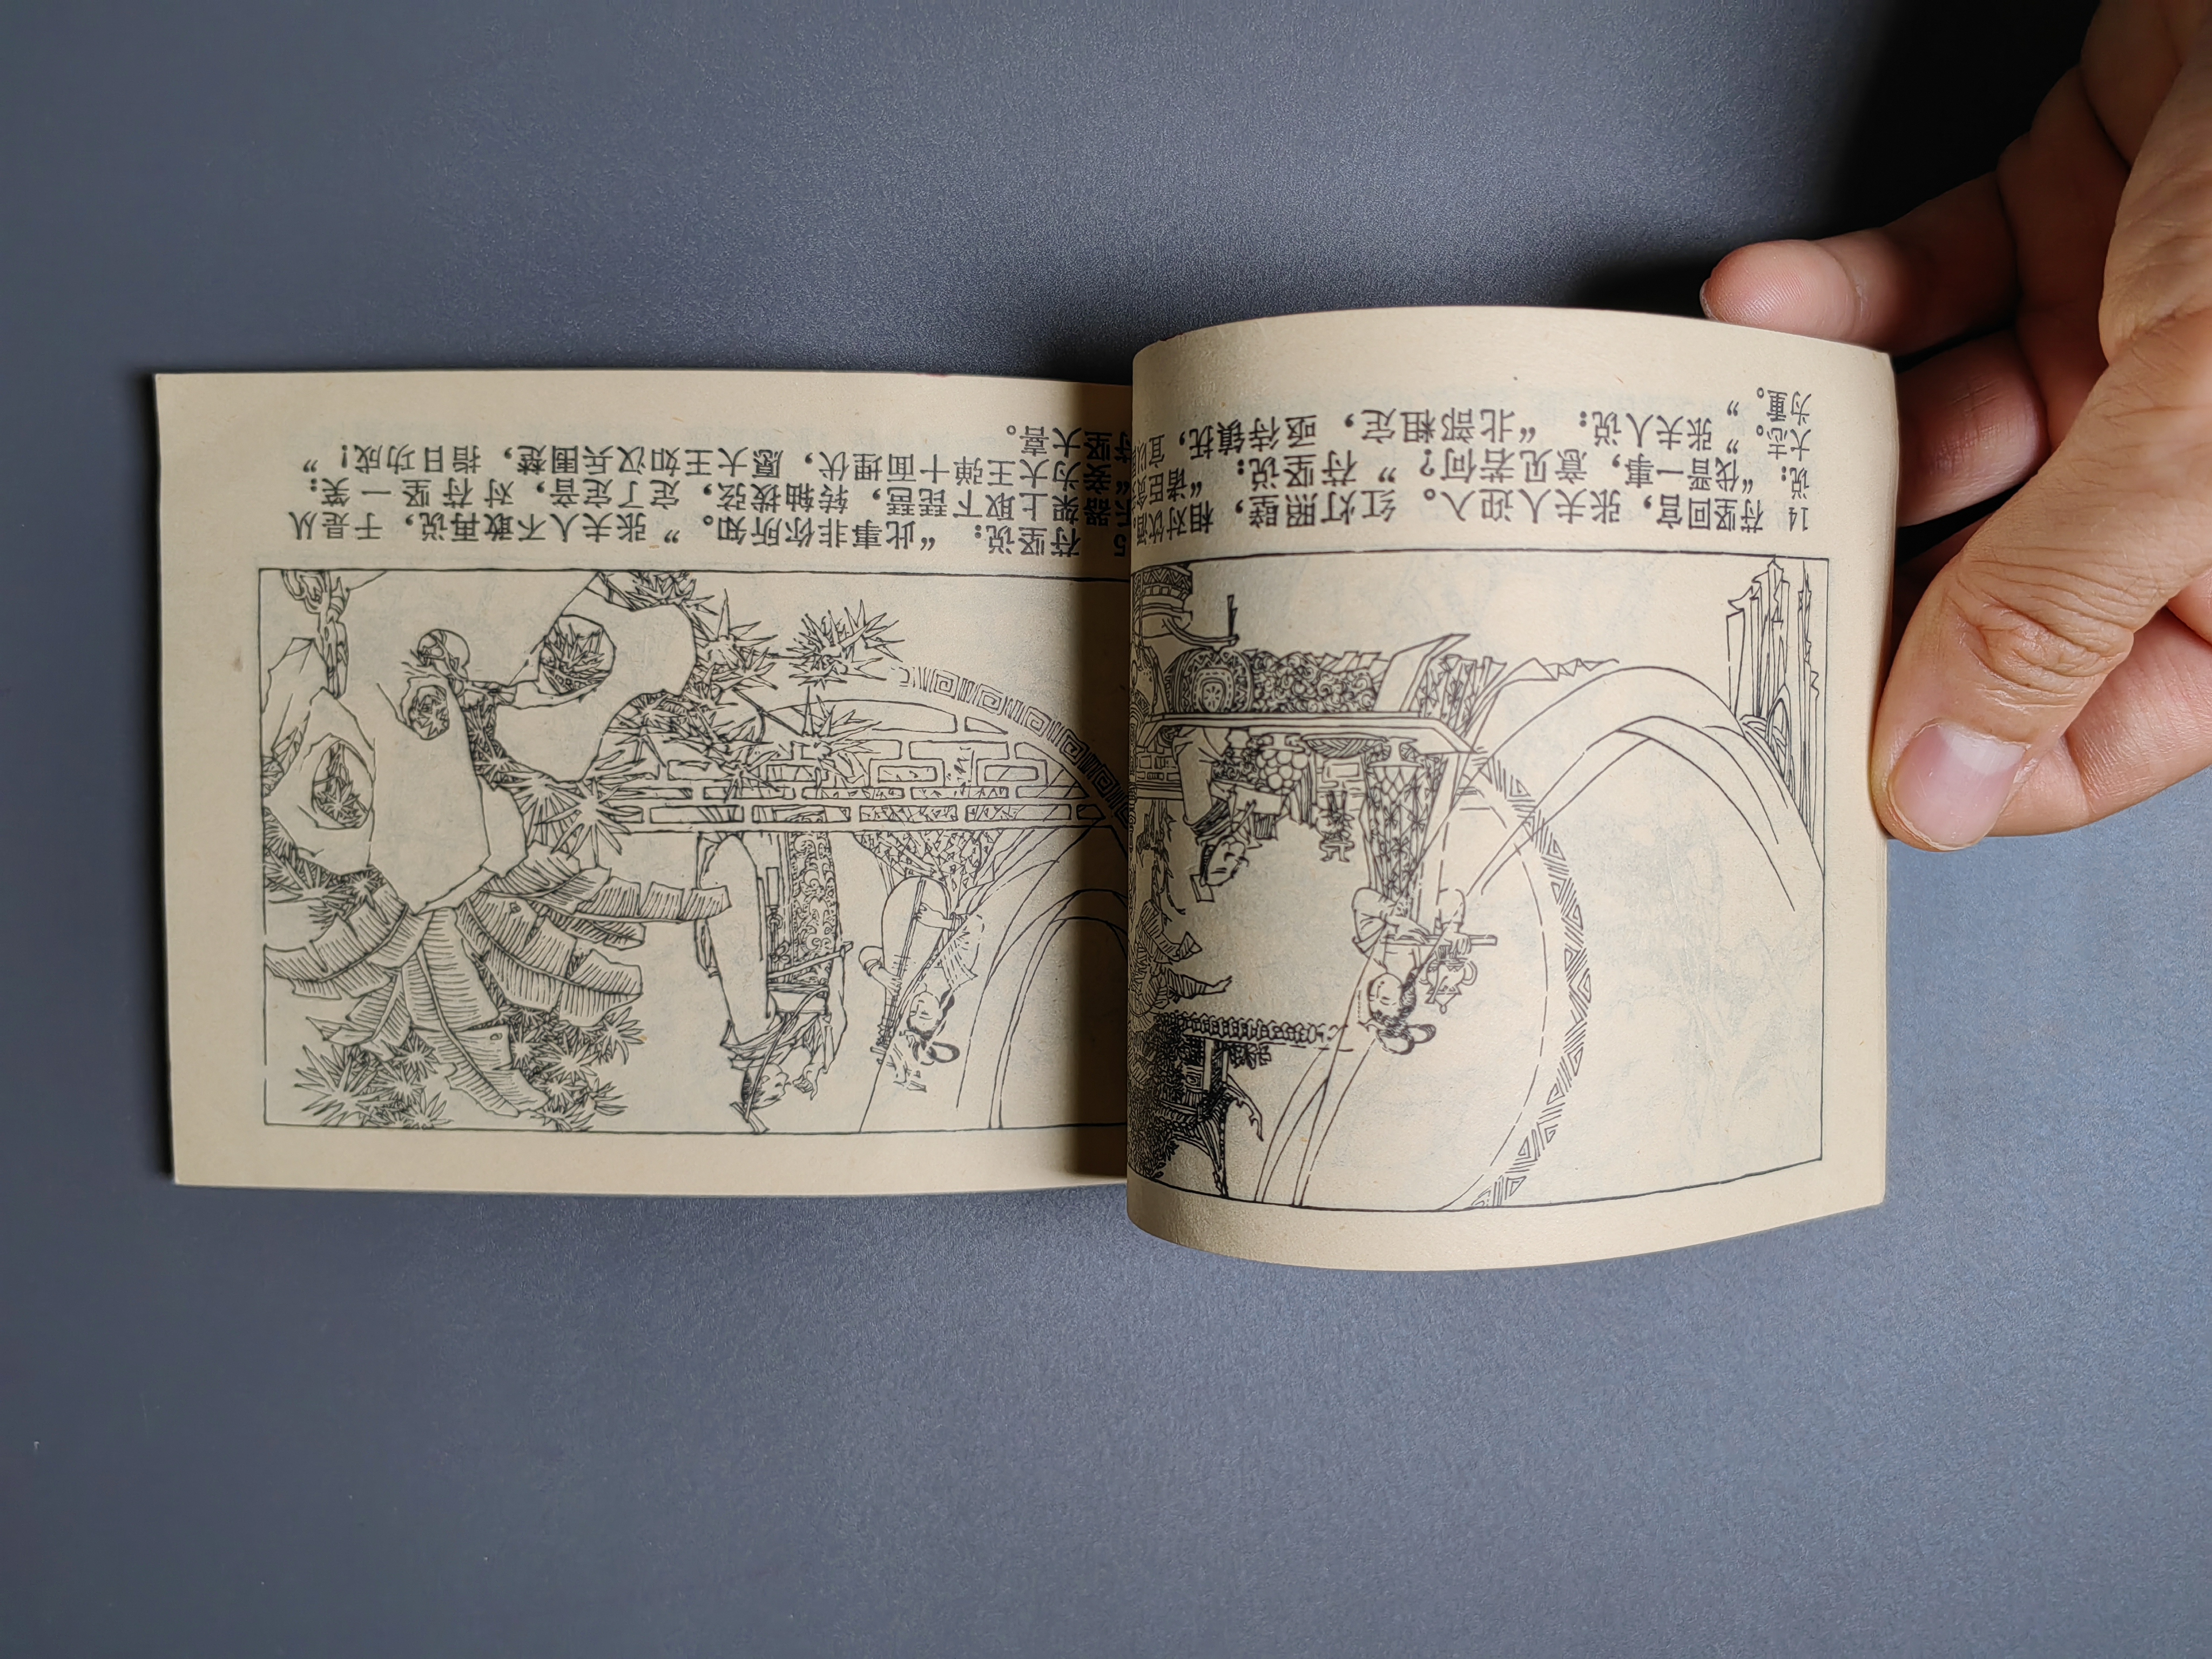 14 苻坚回宫，张夫人迎入。红灯照壁，相对饮
说：“伐晋一事，意见若何？”苻坚说：“诸臣
大志。”张夫人说：“北部粗定，亟待镇抚，宜
为重。”
5 苻坚说：“此事非你所知。”张夫人不敢再说，于是从
乐器架上取下琵琶，转轴拨弦，定了定音，对苻坚一笑：
“妾为大王弹十面埋伏，愿大王如汉兵围楚，指日功成！”
苻坚大喜。